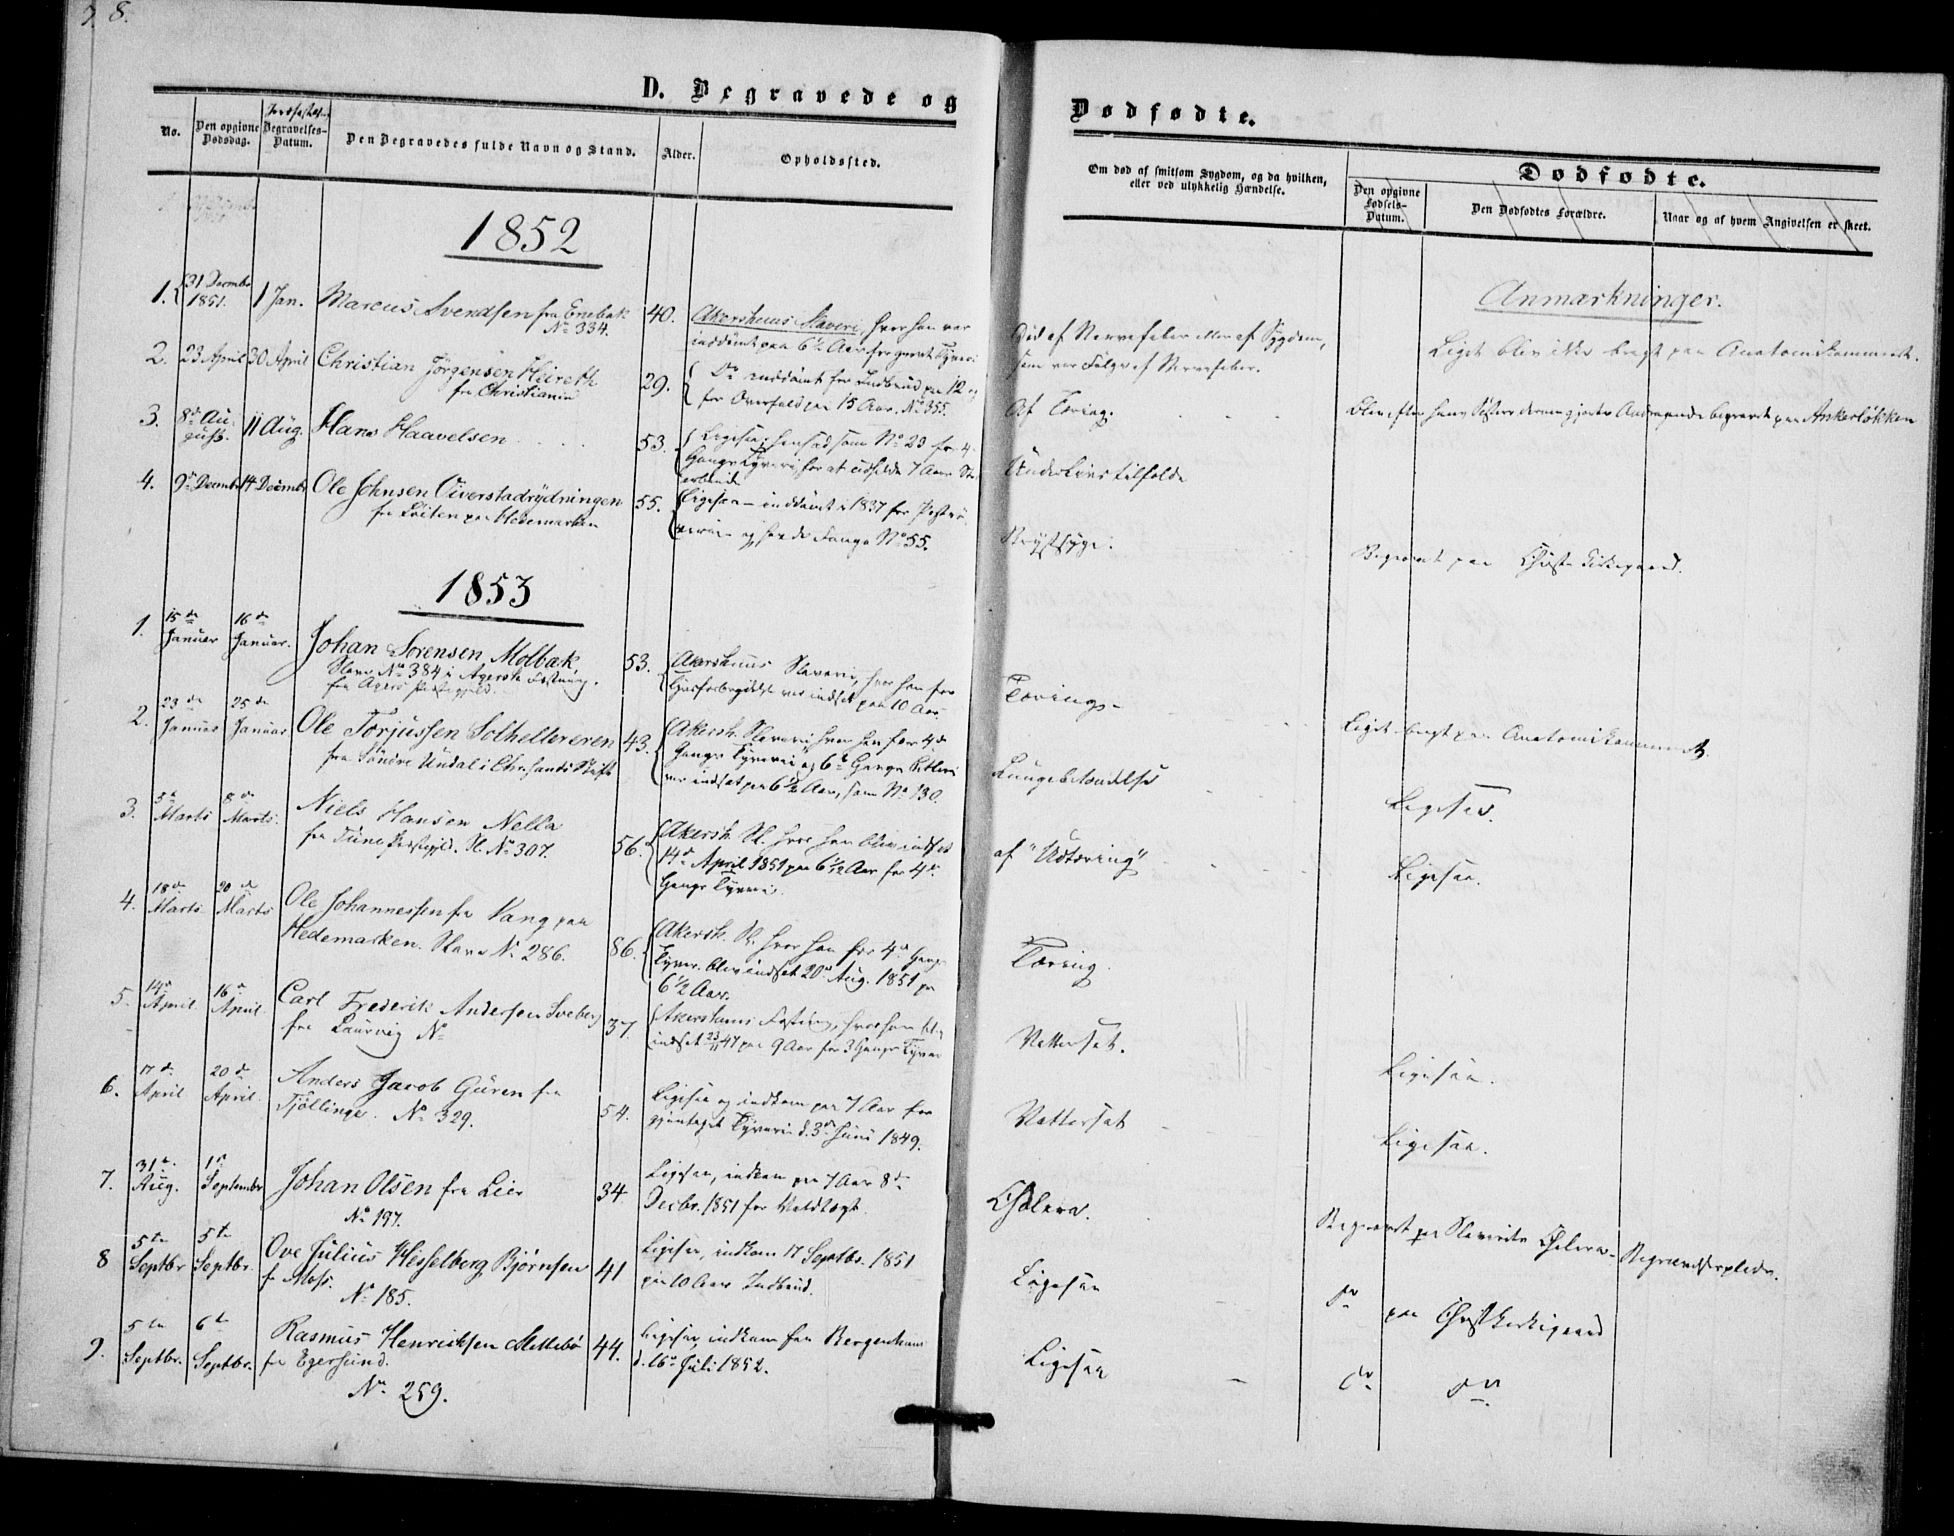 7. 8.
D. Begravede og
Dødfødte.
No.
Den opgivne Dødsdag.
Jordfæstel-
Begravelses-Datum.
Den Begravedes fulde Navn og Stand.
Alder.
Opholdssted.
Om død af smitsom Sygdom, og da hvilken, eller ved ulykkelig Hændelse.
Dødfødte.
Den opgivne Fødsels-Datum.
Den Dødfødtes Forældre.
Naar og af hvem Angivelsen er skeet.
1852
Anmærkninger.
1. 31 Decembr 1851. 1 Jan. Marcus Svendsen fra Enebak
No 334.
40. Akershuus Slaveri, hvor han var
inddömt paa 6½ Aar for gientt Tyveri
Död af Nervefeber eller af Sygdom,
som var Fölge af Nervefeber.
Liget blev ikke bragt paa Anatomikammeret.
2. 23 April 30 April Christian Jörgensen Heireth
fra Christiania
29. Do inddömt for Indbrud paa 12 og
for Overfald paa 15 Aar. No 355.
Af Tæring.
Blev efter hans Söster begravet paa Ankerløkken
3. 8de August. 11 Aug. Hans Haavelsen
53. Ligesaa, hensad som No 23 for 4
Gangs Tyveri, for at udholde 7 Aars
arbeide
Underlivstilfælde
4. 9de Decembr 14 Decembr Ole Johnsen Oiverstadrydningen
fra Löiten paa Hedemarken
55. Ligesaa - inddömt i 1837 for Poströ-
veri og havde Fange No 55.
Brystsyge.
Begravet paa Christ Kirkegaard.
1853
1. 15de Januar 16de Januar. Johan Sörensen Molbæk,
Slave No 384 i Agersh. Fæstning.
fra Agers Præstegjeld.
53. Akershuus Slaveri, hvor han for
var indsat paa 10 Aar.
Tærings-
Liget bragt paa Anatomikammeret
2. 23de Januar 25de Januar Ole Torjussen Solhellereren
fra Söndre Undal i Chr.sands Stift
43. Akersh. Slaveri, hvor han for 4de
Gangs Tyveri og 6te Gangs Betleri
var indsat paa 6½ Aar, som No 130.
Lungebetændelse
Ligesaa.
3. 5te Marts 8de Marts. Niels Hansen Nella
fra Tune Præstegjeld. Sl. No 307.
56. Akersh. Sl. hvor han blev indsat
14de April 1851 paa 6½ Aar for 4de
Gangs Tyveri.
af "Udtæring"
Ligesaa.
4. 18de Marts 20de Marts Ole Johannessen fra Vang paa
Hedemarken. Slave No 286.
86. Akersh. Sl. hvor han for 4de Gangs
Tyveri blev indsat 20de Aug. 1851 paa
6½ Aar.
Tæring.
5. 14de April 16de April. Carl Frederik Andersen Sveberg
fra Laurvig No
37. Akershuus Fæstning, hvor han blev
indsat 23/11 47 paa 9 Aar for 3 Gangs Tyveri
Vattersot.
Ligesaa.
6. 17de April 20de April. Anders Jacob Guren fra
Tjöllinge. No 329.
54. Ligesaa og indkom paa 7 Aar for
gjentaget Tyveri d. 3de Juni 1849.
Vattersot
Ligesaa.
7. 31te Aug. 1ste September Johan Olsen fra Lier
No 197.
34. Ligesaa, indkom paa 7 Aar 8de
Decbr. 1851 for Voldtægt.
Cholera.
Begravet paa Slaveriets Cholera-Begravelsesplads.
8 5te Septbr 5te Septbr. Ove Julius Hesselberg Bjørnsen
fr Moss.
No 185.
41 Ligesaa, indkom 17 Septbr. 1851
paa 10 Aar Indbrud.
Ligesaa
do paa Christ Kirkegaard
9. 5te Septbr. 6te Septbr. Rasmus Henriksen Mettebö
fra Egersund.
No 259.
44. Ligesaa, indkom fra Bergenhuus
d. 16de Juli 1852.
Ligesaa
do do